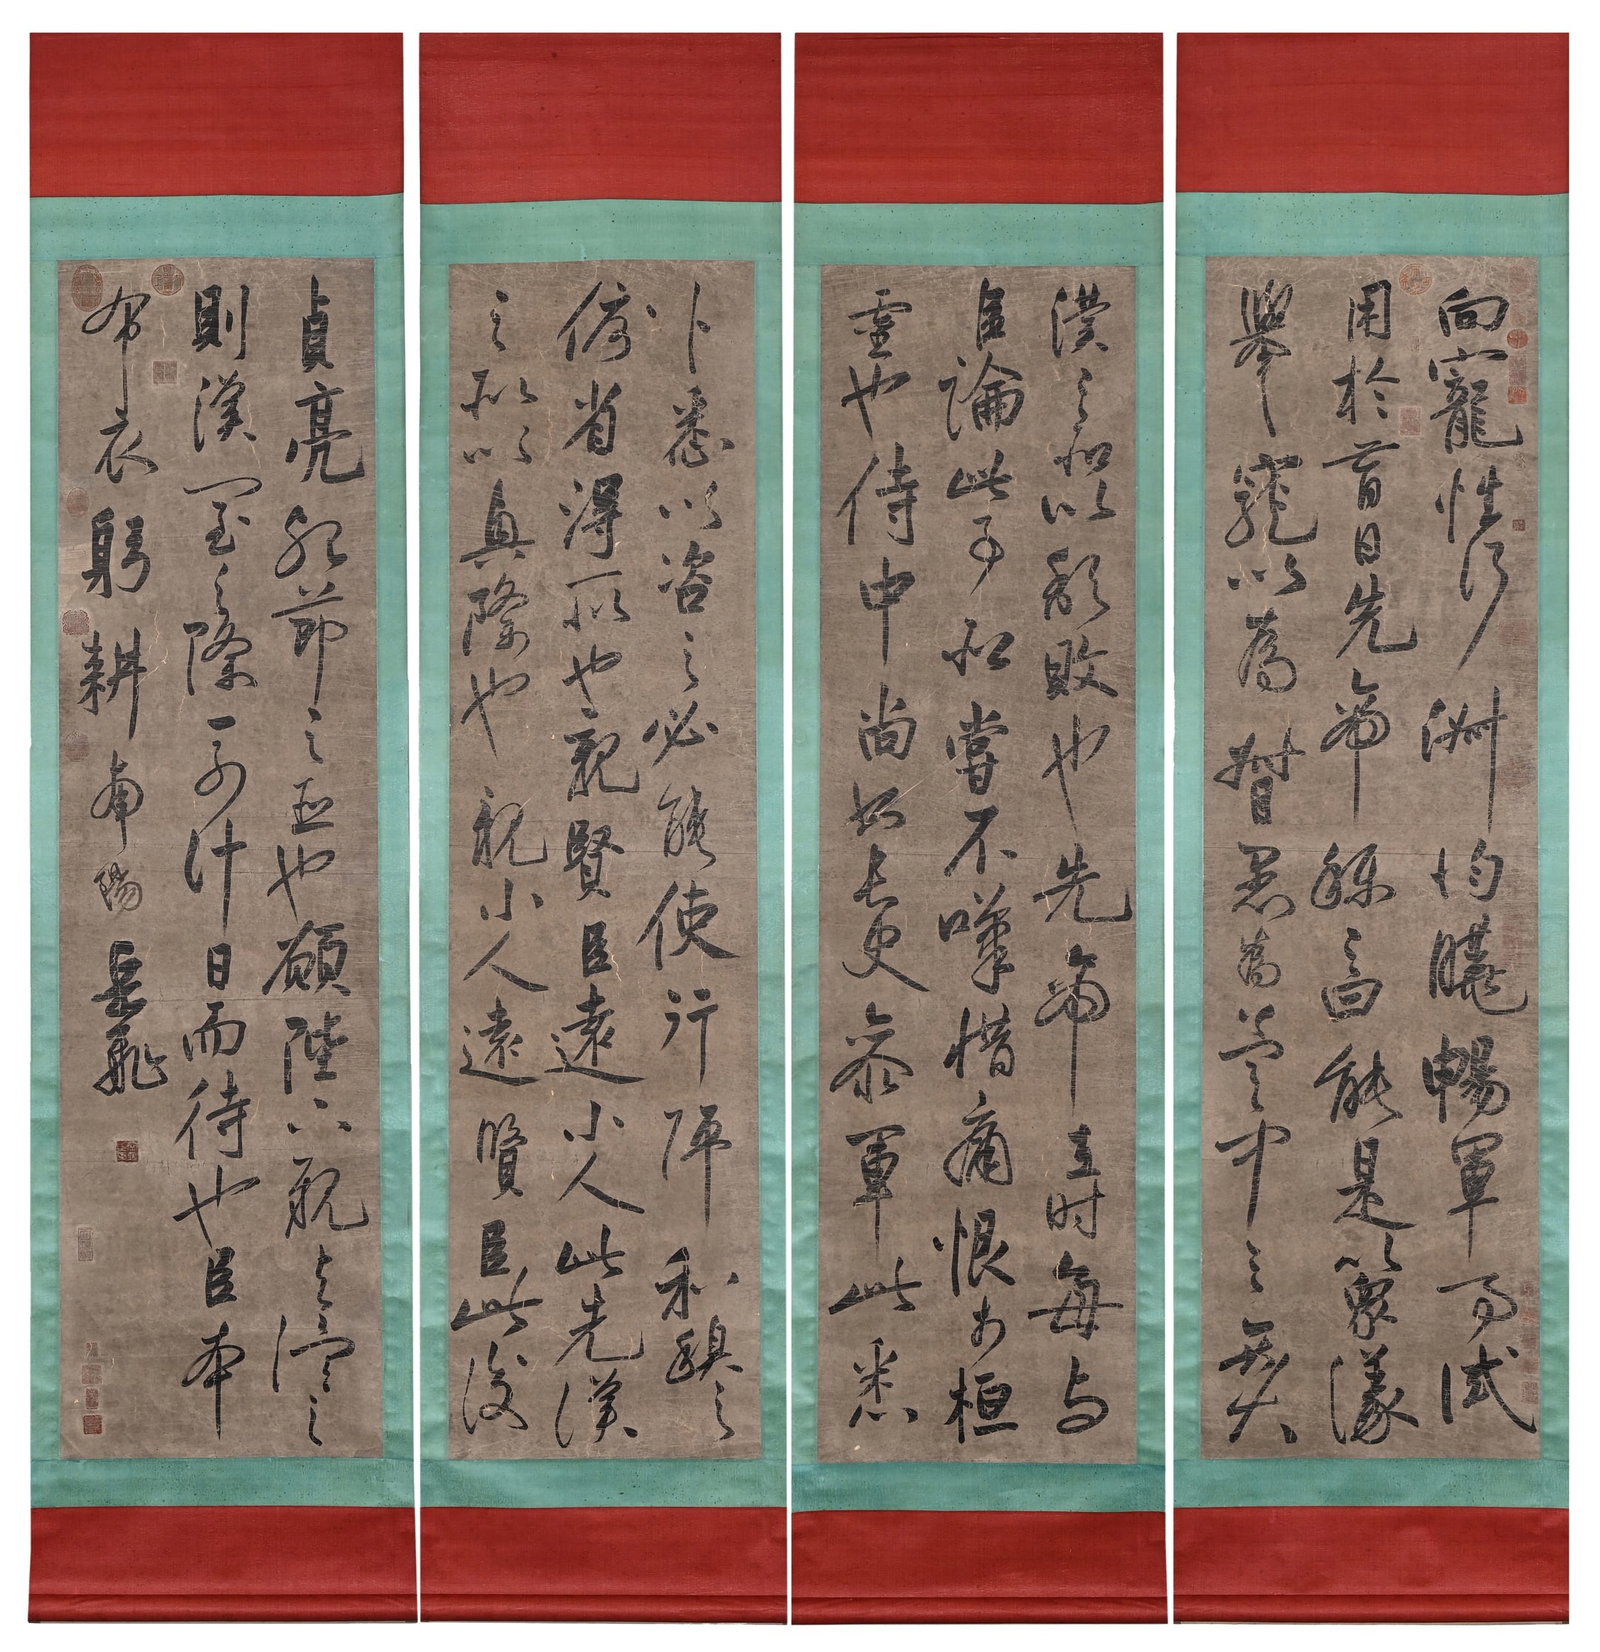 向寵性行淑均曉暢軍事試
用於昔日先帝稱之曰能是以衆議
舉寵以為督愚為營中之大
漢之所以頹敗也先帝在時每與
臣論此事未嘗不嘆惜痛恨於桓
靈也侍中尚書長史參軍此悉
小悉以咨之必能使行陣和穆
優得所也親賢臣遠小人此先漢
之所以興隆也親小人遠賢臣此後
貞亮死節之臣也願陛下親之信之
則漢室之隆可計日而待也臣本
布衣躬耕南陽 岳飛